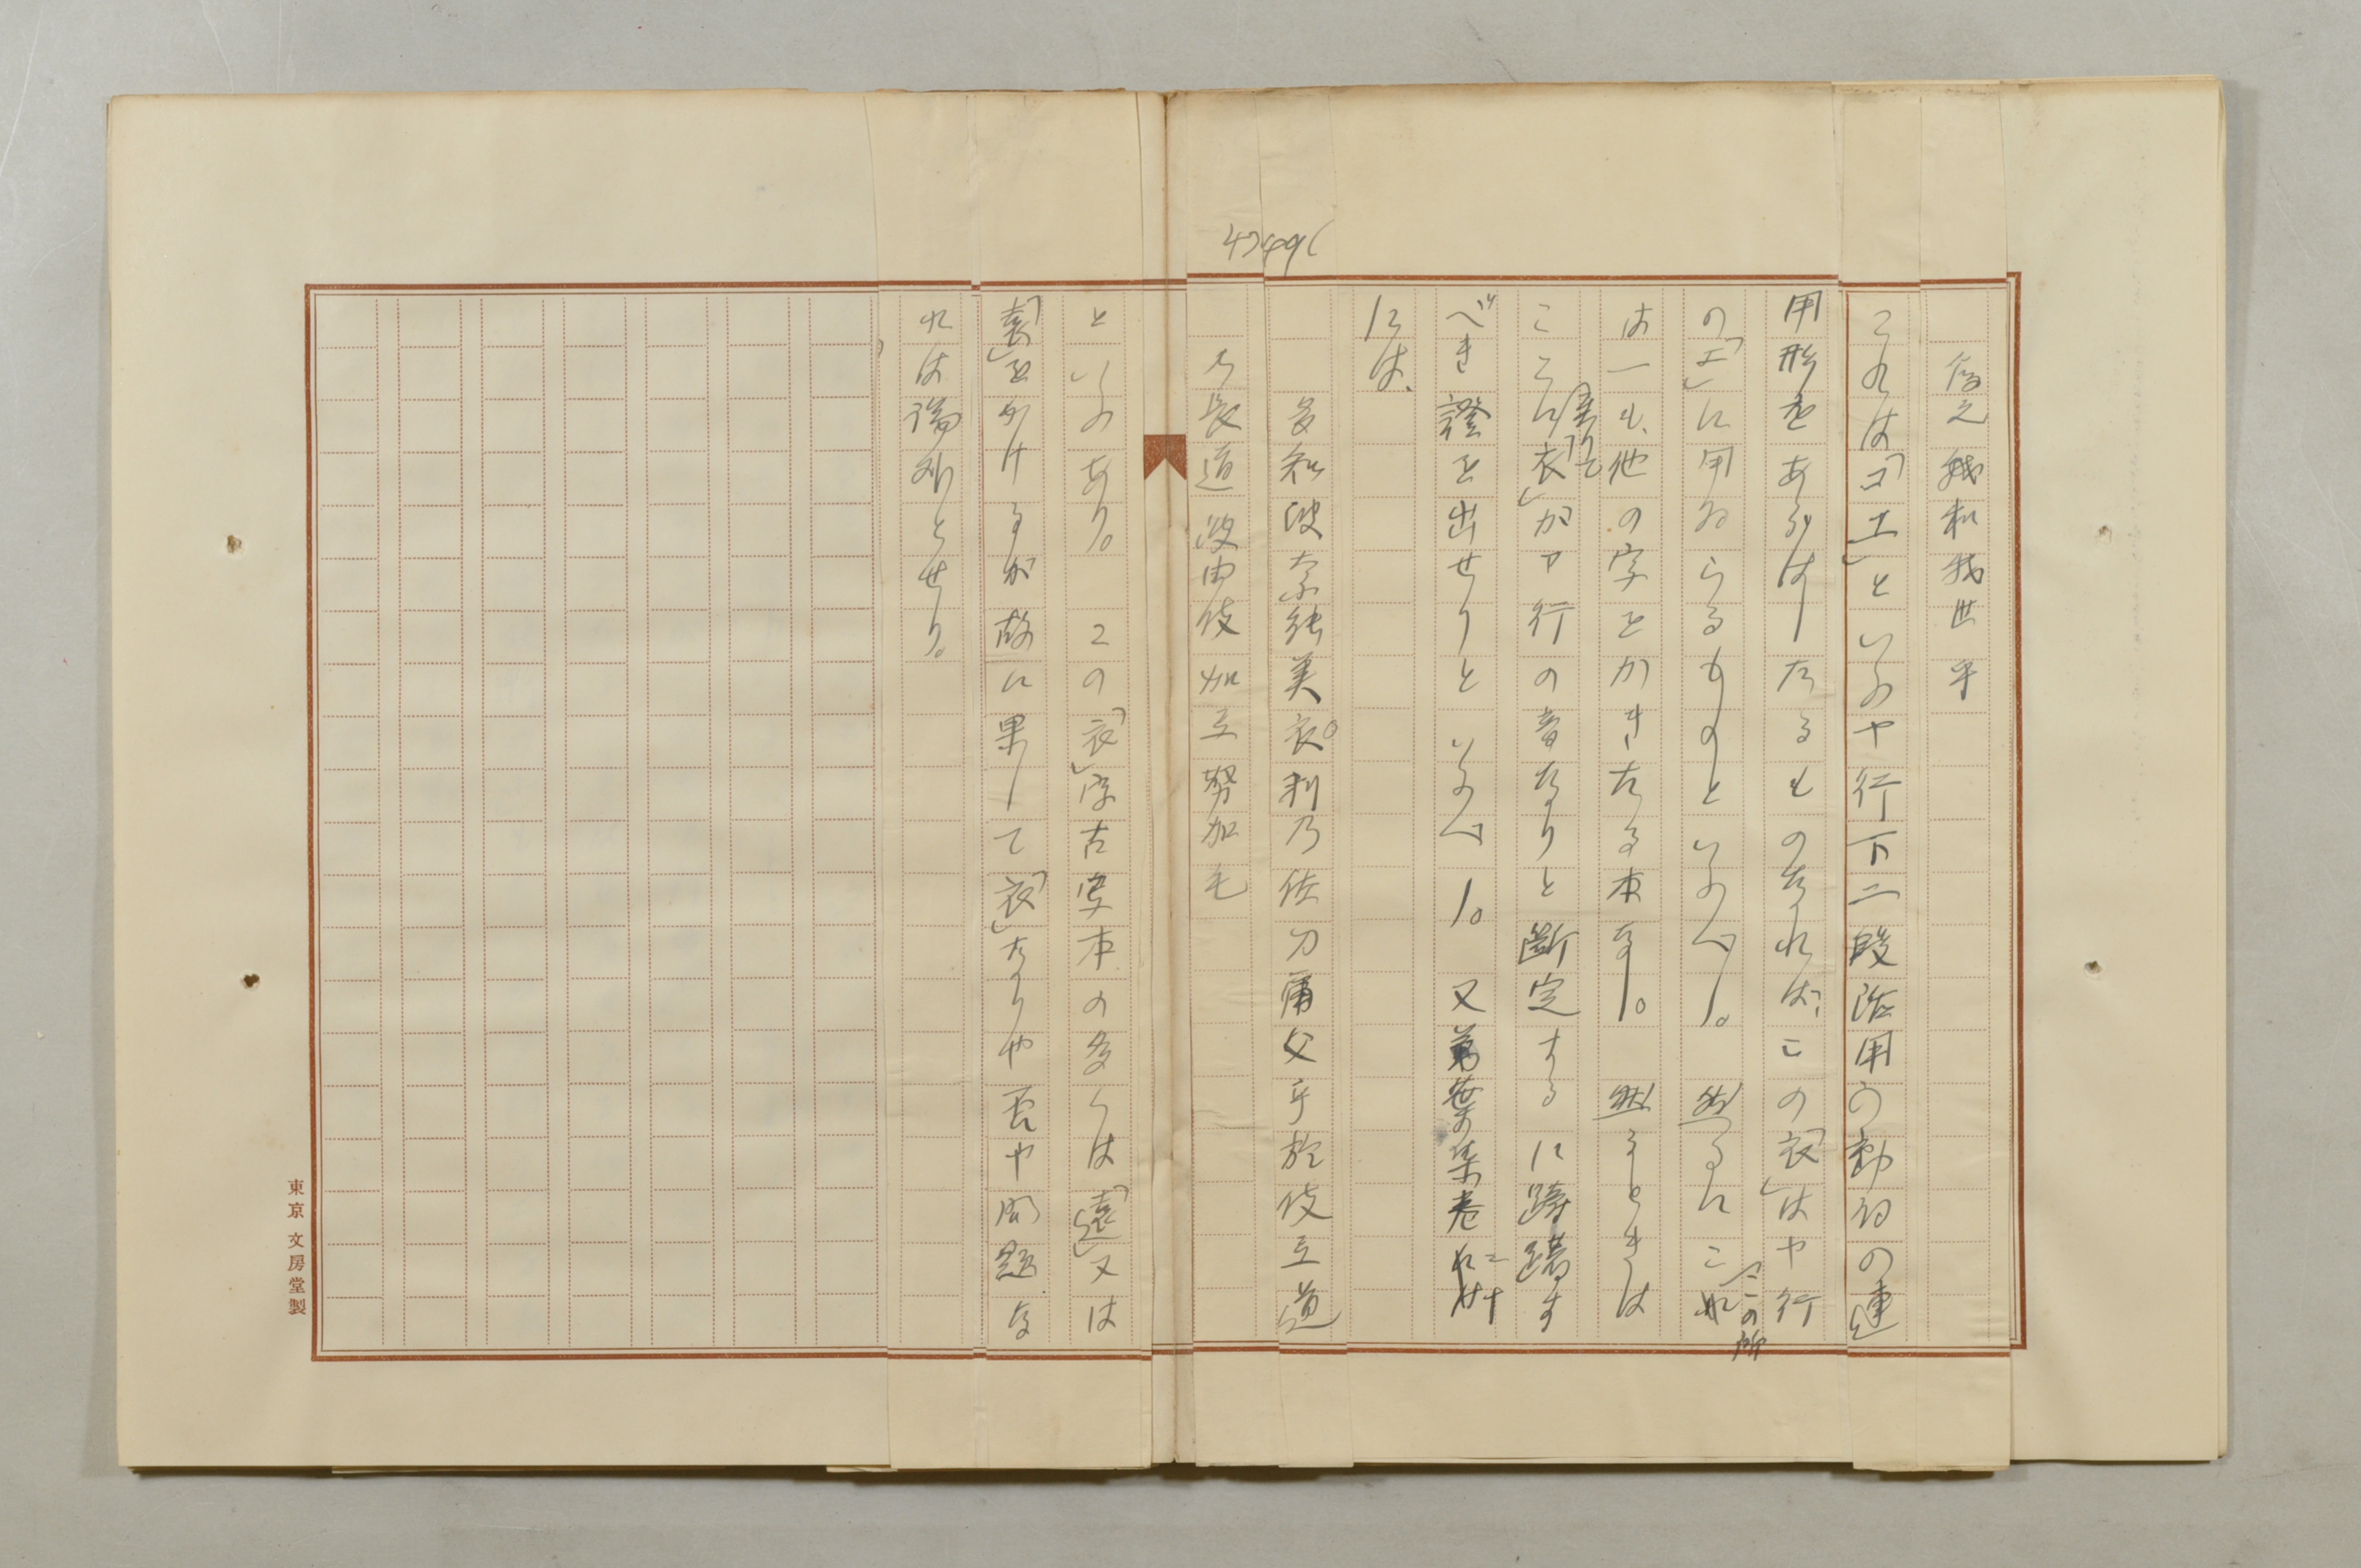 4749(
倍之 餓和我世乎
これは「コエ」といふや行下二段活用の動詞の連
用形をあらはしたるものなれば、この「衣」はや行
の「エ」に用ゐらるものといふべし。然るにこれ
(この所
は一も、他の字とかきたる本なし。然るときは
ここに「衣」がア行の音なりと断定するに躊躇す
べき證を出せりといふべし。又萬葉集巻二十
には、
多知波奈能美衣利乃佐刀爾父乎於伎立道
乃長道波由伎加立努加毛
といふあり。この「衣」字古寫本の多くは「遠」又は
「袁」とかけるが故に果して「衣」なりや否や問題な
れは論外とせり。
東京 文房堂製